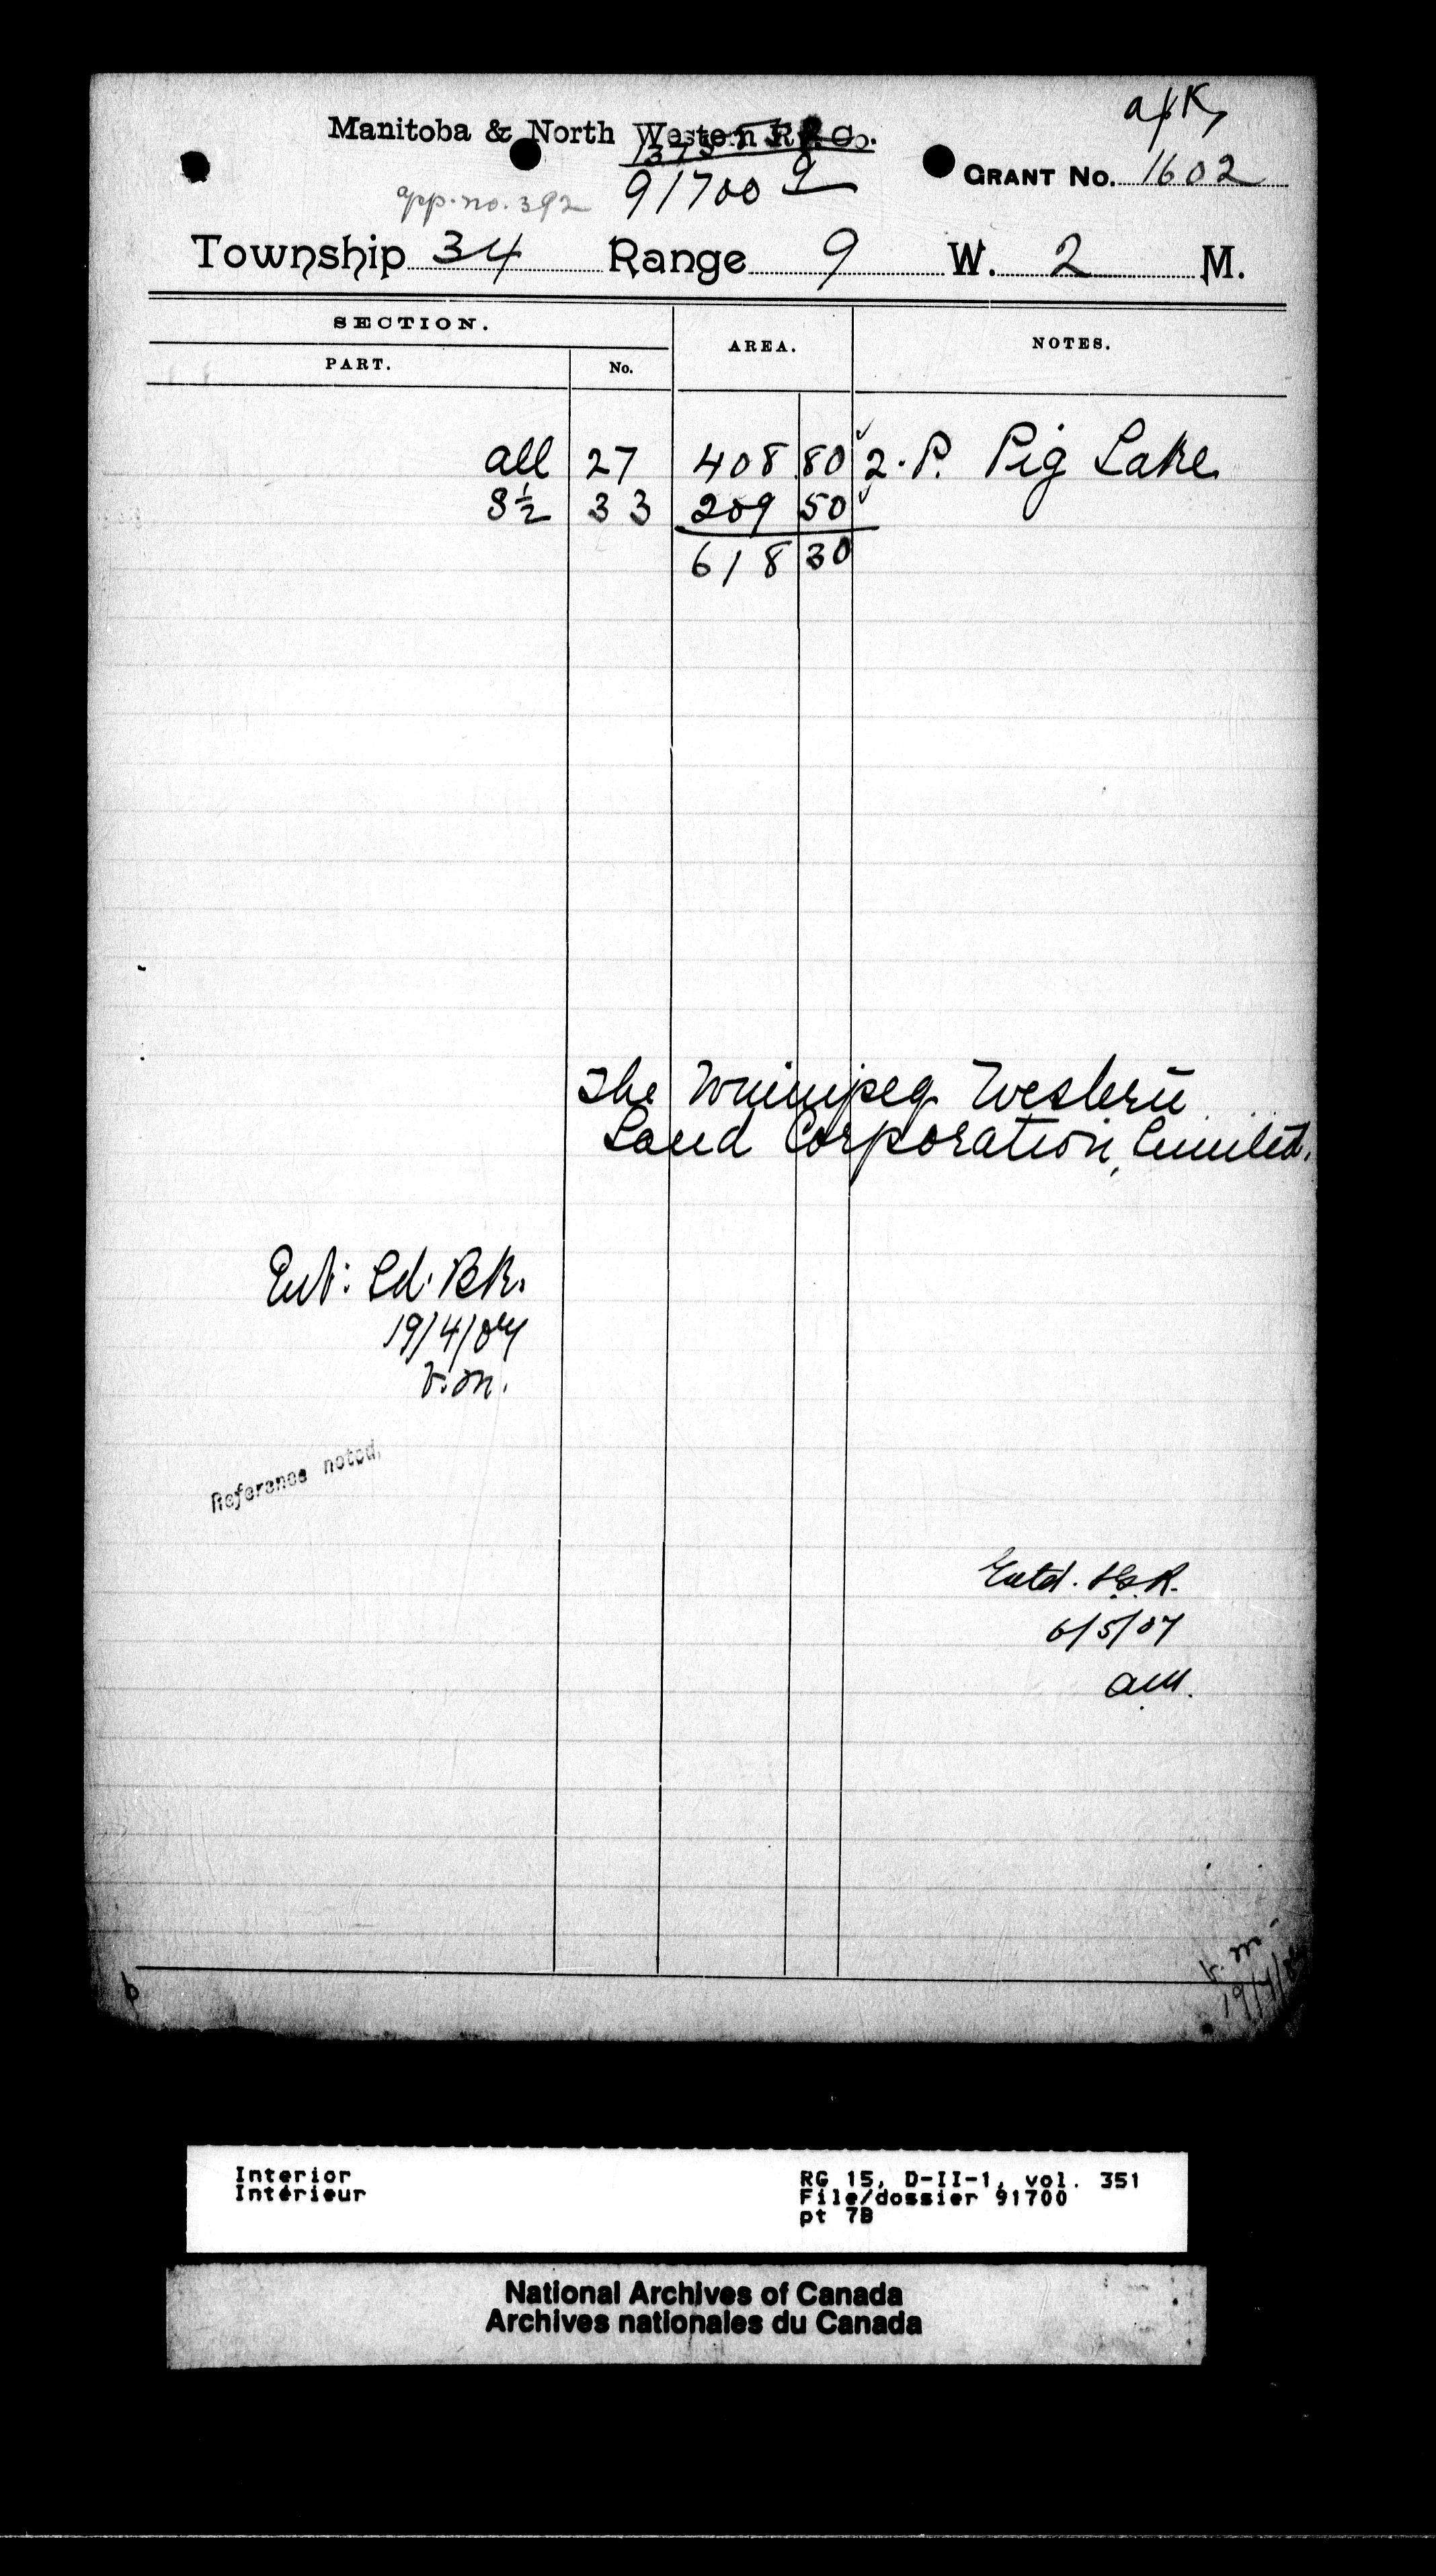 apk
Manitoba & North Western Ry. Co.
91700 9
app. no. 392
GRANT No. 1602
Township 34 Range 9 W. 2 M.
SECTION.
PART. No. AREA. NOTES.
all 27 408 80 2. P. Pig Lake
S½ 33 209 50
618 30
The Winnipeg Western
Land Corporation, Limited.
Ent: Ld. Bk.
19/4/04
V.M.
Reference noted,
Entd. H.B.R.
6/5/07
am.
V. M.
Interior
Intérieur
RG 15, D-II-1, vol. 351
File/dossier 91700
pt 7B
National Archives of Canada
Archives nationales du Canada